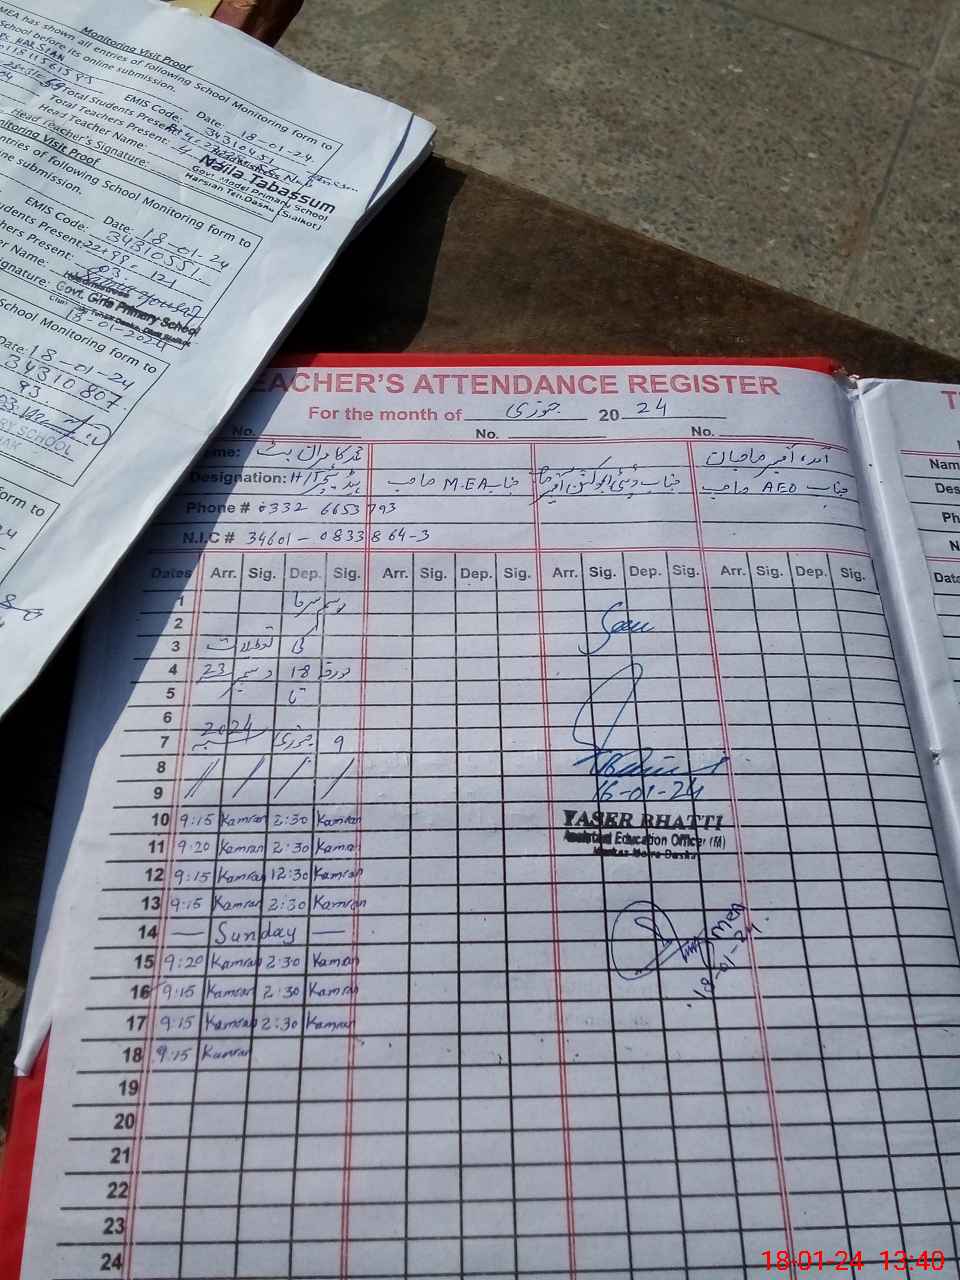 Monitoring Visit Proof
MEA has shown all entries of following School Monitoring form to
School before its online submission.
EMIS Code: 34310451 Date: 18-01-24
Total Students Present:
Total Teachers Present: 4
Head Teacher Name:
Head Teacher's Signature:
Naila Tabassum
Govt. Model Primary School
Harsian Teh.Daska (Sialkot)
Monitoring Visit Proof
entries of following School Monitoring form to
submission.
Date: 18-01-24
EMIS Code: 34310551
Students Present: 22+99=121
Teachers Present: 03
Name:
Signature:
Govt. Girls Primary School
18-01-2024
School Monitoring form to
Date: 18-01-24
34310807
93
RY SCHOOL
form to
TEACHER'S ATTENDANCE REGISTER
For the month of جنوری 2024
No. No. No.
Name: محمد کامران بٹ آمدہ آفیسر صاحبان
Designation: ہیڈ ٹیچر/H جناب M.EA صاحب جناب ڈپٹی ایجوکیشن آفیسر جناب AEO صاحب
Phone # 0332 6653793
N.I.C # 34601-0833864-3
Dates Arr. Sig. Dep. Sig. Arr. Sig. Dep. Sig. Arr. Sig. Dep. Sig. Arr. Sig. Dep. Sig.
1 موسم سرما
2 Seen
3 کی تعطیلات
4 مورخہ 18 دسمبر 23
5 تا
6
7 9 جنوری 2024
8
9 16-01-24
10 9:15 Kamran 2:30 Kamran
YASER BHATTI
Assistant Education Officer (M)
11 9:20 Kamran 2:30 Kamran
12 9:15 Kamran 12:30 Kamran
13 9:15 Kamran 2:30 Kamran
14 — Sunday —
MEA
18-01-24
15 9:20 Kamran 2:30 Kamran
16 9:15 Kamran 2:30 Kamran
17 9:15 Kamran 2:30 Kamran
18 9:15 Kamran
19
20
21
22
23
24
Nam
Des
Ph
N
Date
18-01-24 13:40